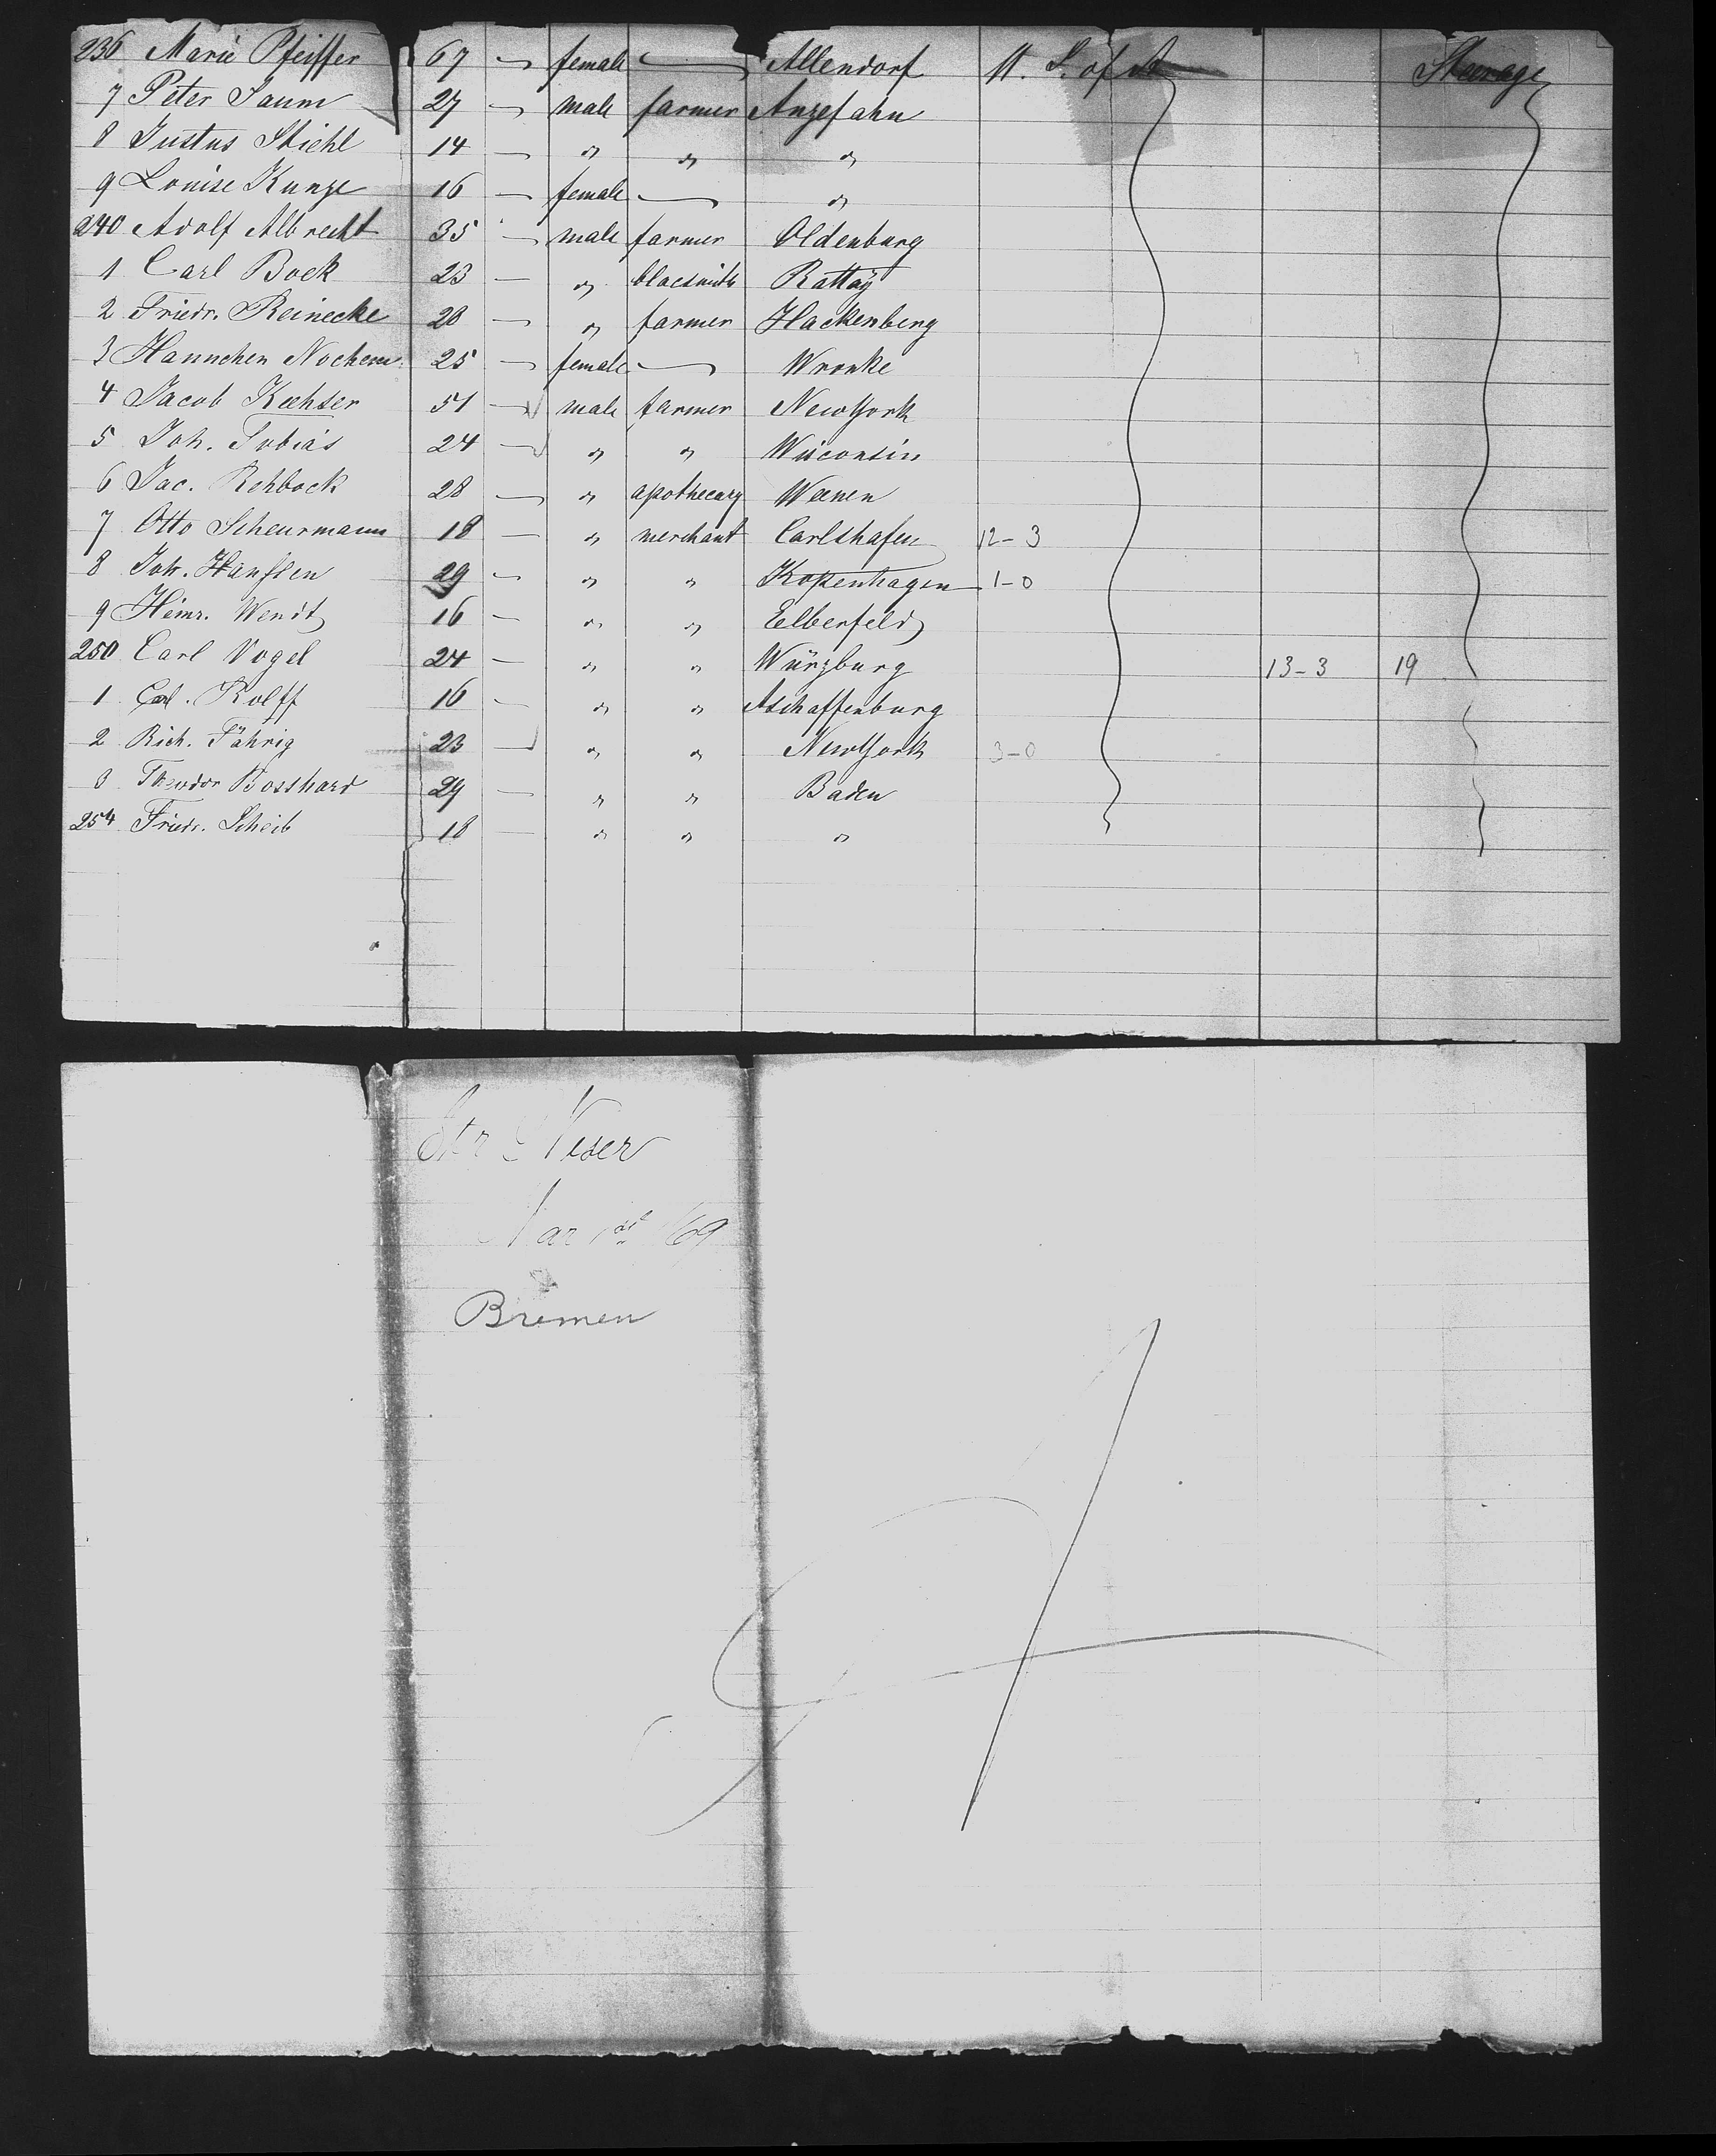 236 Marie Pfeiffer 67 — female — Allendorf U. S. of A Steerage
7 Peter Saum 27 — male farmer Anzefahn
8 Justus Stiehl 14 — " " "
9 Louise Kunze 16 — female — "
240 Adolf Albrecht 35 — male farmer Oldenburg
1 Carl Bock 23 — " blacsmith Rattay
2 Friedr. Reinecke 28 — " farmer Hackenberg
3 Hannchen Nochem 25 — female — Wronke
4 Jacob 51 — male farmer NewYork
5 Joh. Tobias 24 — " " Wisconsin
6 Jac. Rehbock 28 — " apothecary Weenen
7 Otto Scheurmann 18 — " merchant Carlshafen 12-3
8 Joh. Hanssen 29 — " " Kopenhagen 1-0
9 Heinr. Wendt 16 — " " Elberfeld
250 Carl Vogel 24 — " " Würzburg 13-3 19
1 Rolff 16 — " " Aschaffenburg
2 Rich. Fährig 23 — " " NewYork 3-0
3 Theodor Bosshard 29 — " " Baden
254 Friedr. Scheib 18 — " " "
Str Weser
Mar 1st /69
Bremen